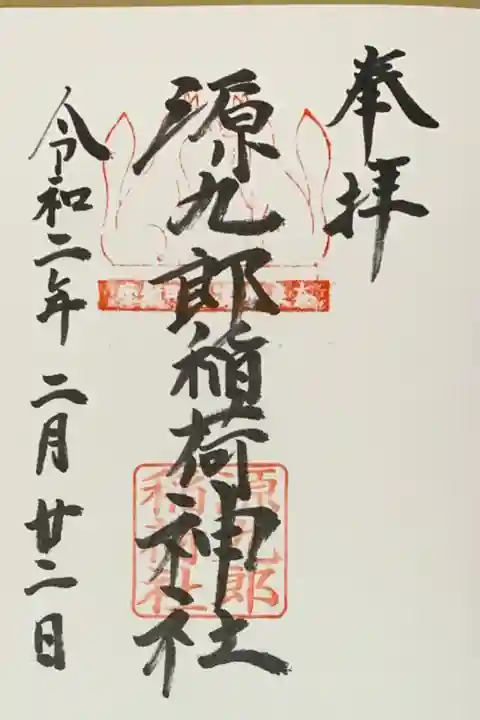 奉拝
源九郎稲荷神社
源九郎
稲荷社
令和二年二月廿二日